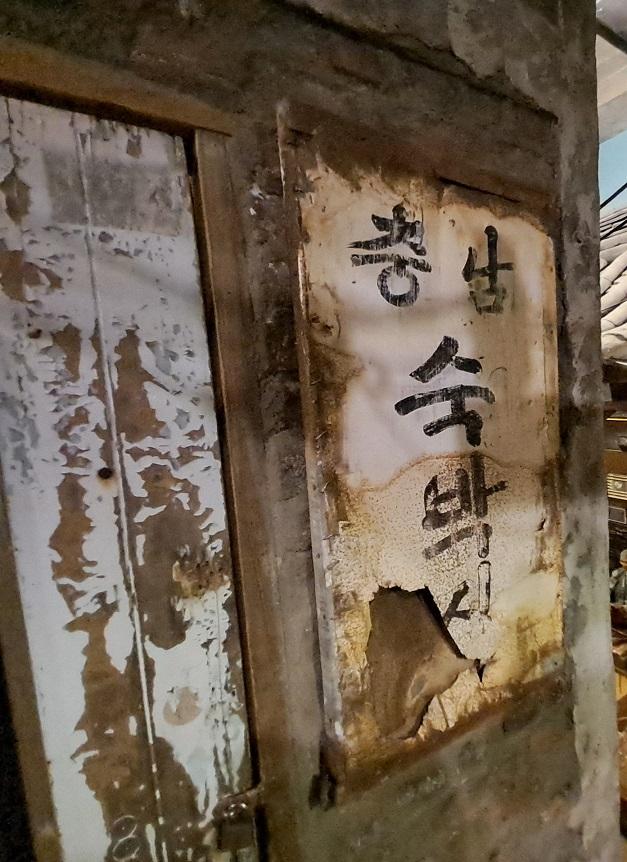 충남
숙
박
시